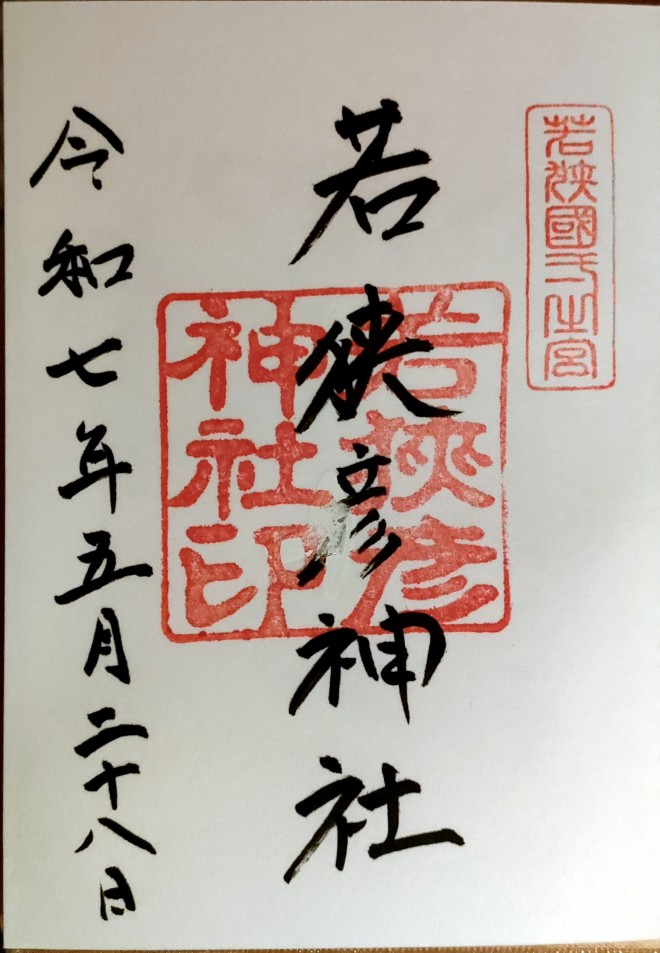 若狭國一之宮
若狭彦神社
若狭彦
神社印
令和七年五月二十八日